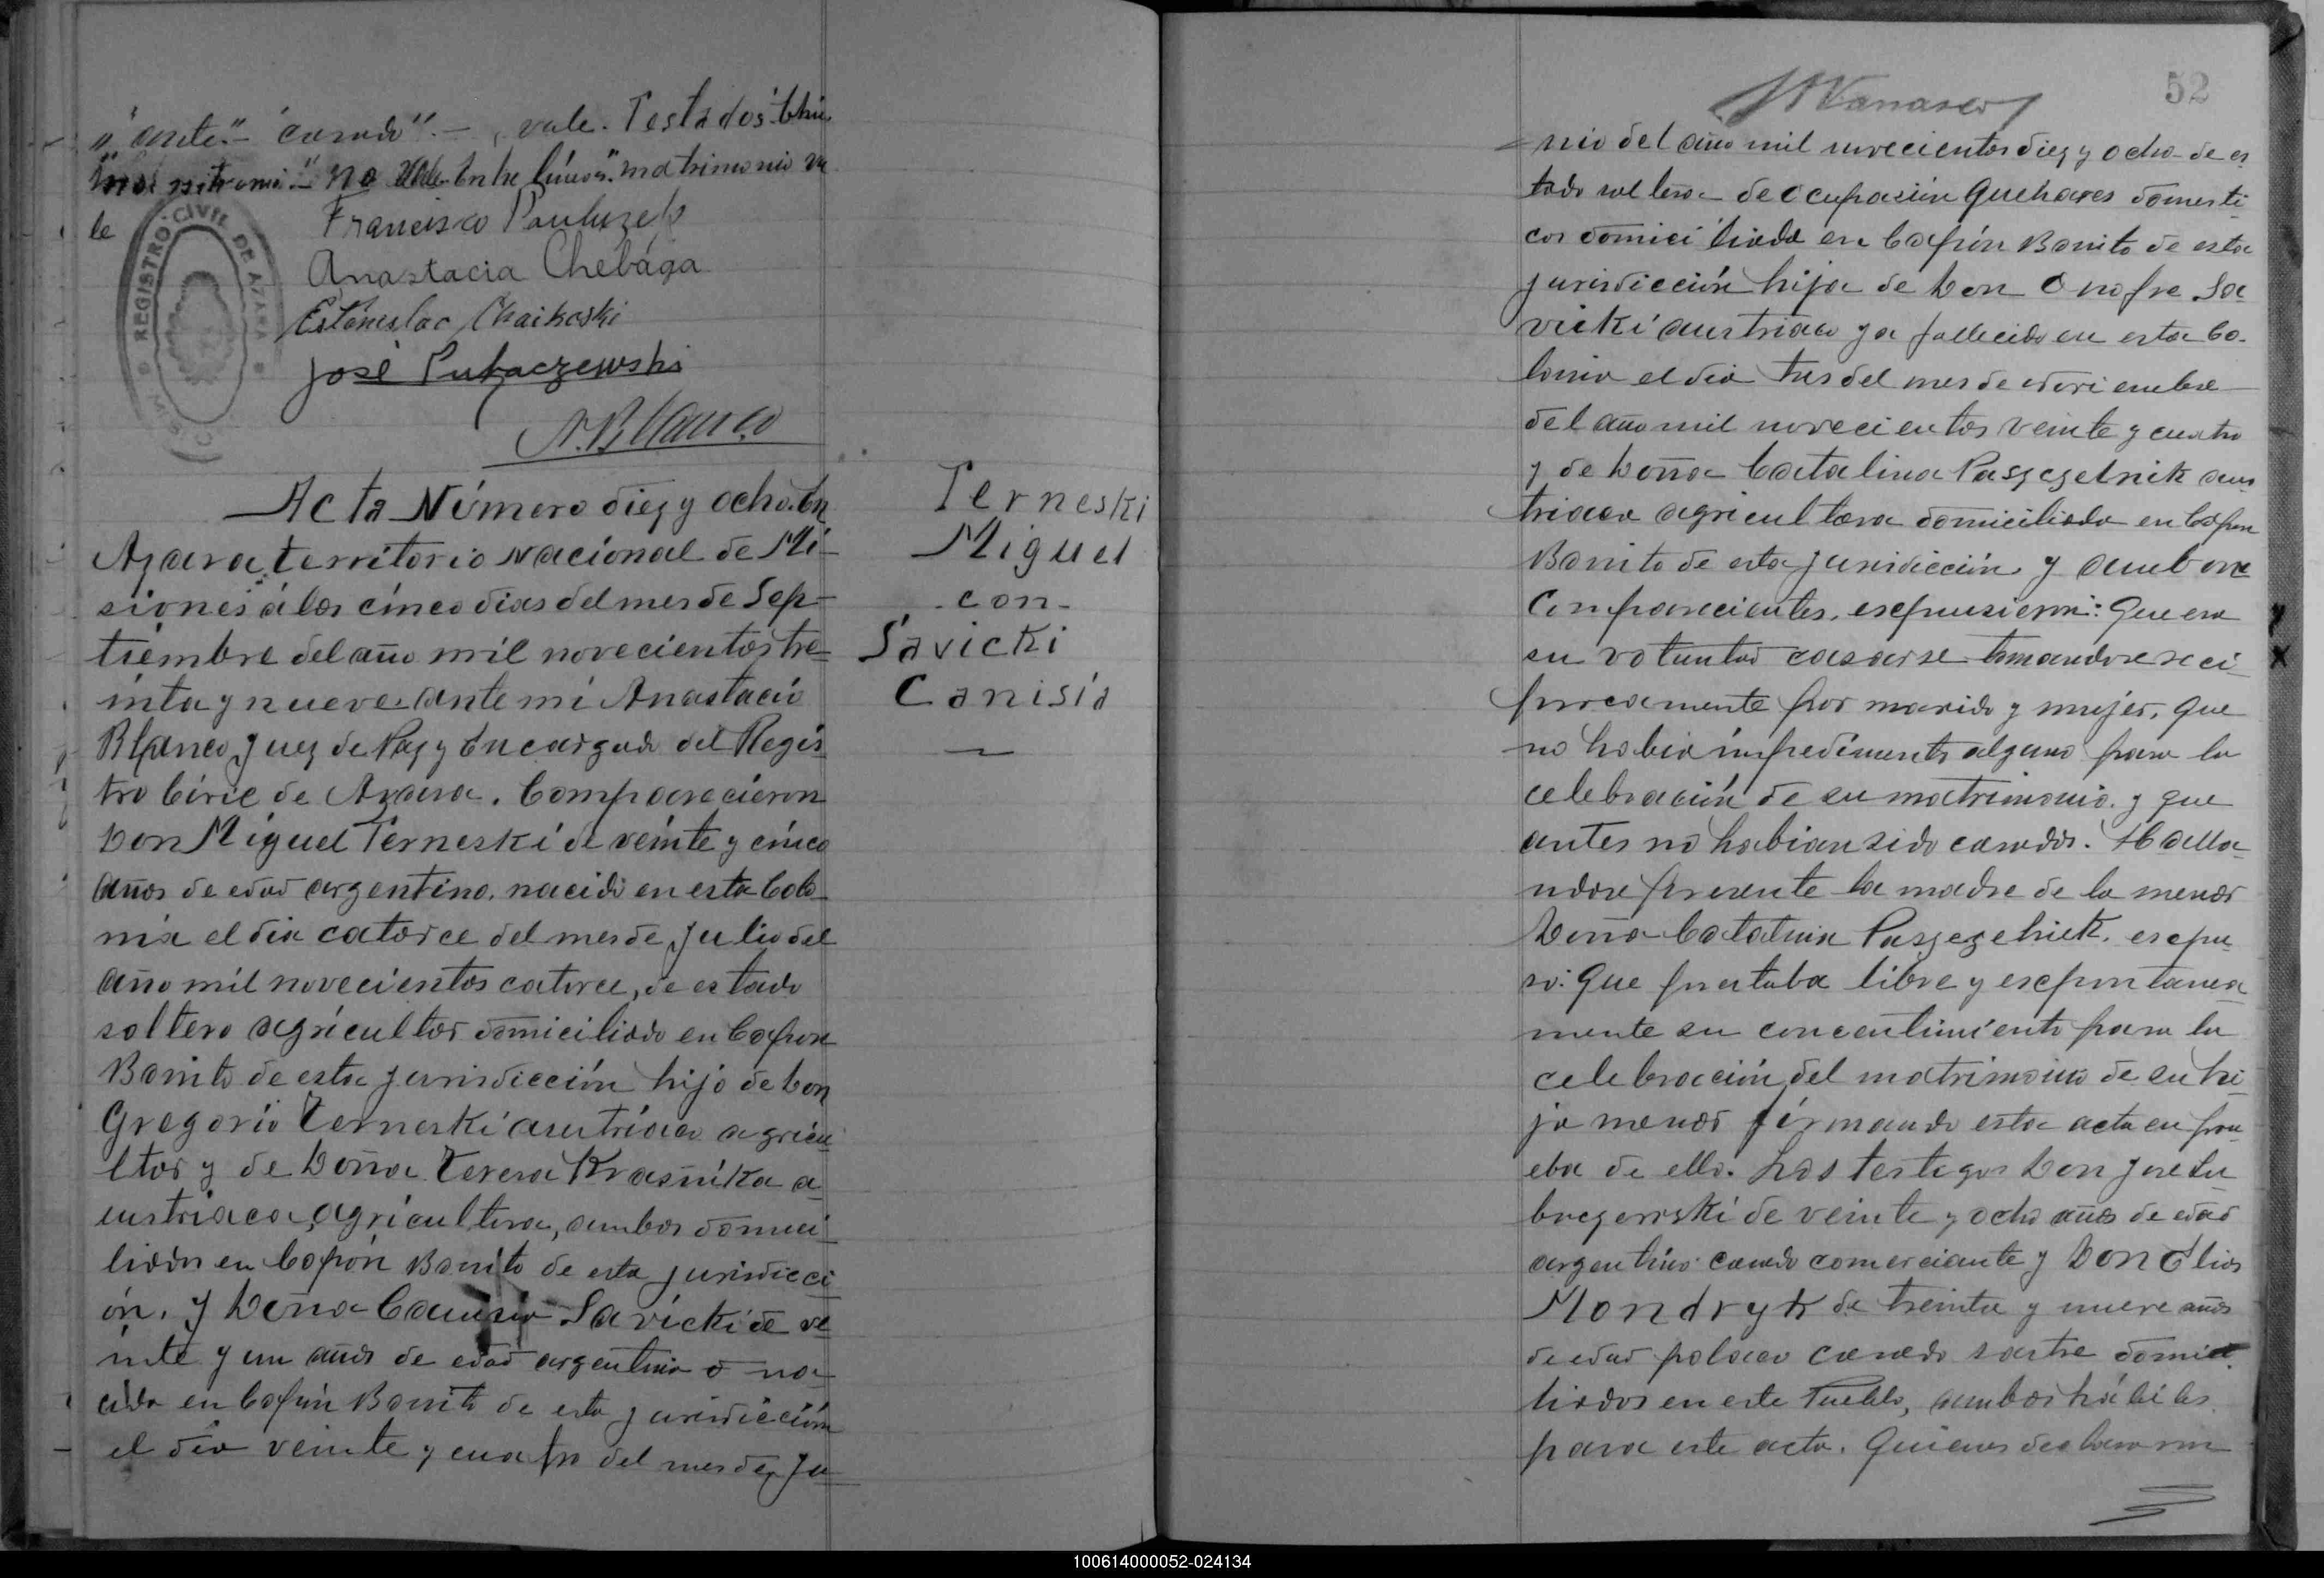 "ante" - "casado". - , vale. Testados: 
 no vale. Entre líneas: "matrimonio va
le
REGISTRO CIVIL DE AZARA
Francisco
Anastacia Chebága
Estanislao Chaikoski
José Pukaczewski
A. Blanco
Acta Número diez y ocho. En
Azara, territorio Nacional de Mi-
siones á los cinco dias del mes de Sep-
tiembre del año mil novecientos tre-
inta y nueve. ante mi Anastacio
Blanco, Juez de Paz y Encargado del Regis-
tro Civil de Azara. Comparecieron
Don Miguel Terneski de veinte y cinco
años de edad argentino, nacido en esta Colo-
nia el dia catorce del mes de Julio del
año mil novecientos catorce, de estado
soltero agricultor domiciliado en Capon
Bonito de esta jurisdicción hijo de Don
Gregorio Terneski austriaco agricu-
ltor y de Doña Teresa Krasñika a-
ustriaca, agricultora, ambos domici-
liados en Capón Bonito de esta jurisdicci-
ón. y Doña Canisia Savicki de ve-
inte y un años de edad argentina na-
cida en Capón Bonito de esta jurisdicción
el día veinte y cuatro del mes de Ju-
Terneski
Miguel
- con -
Savicki
Canisia
52
nio del año mil novecientos diez y ocho de es-
tado soltera de ocupasión quehares domesti-
cos domiciliada en Capón Bonito de esta
jurisdicción hija de Don Onofre Sa
vicki austriaco ya fallecido en esta Co-
lonia el día tres del mes de
del año mil novecientos veinte y cuatro
y de Doña Catalina Paszczelnik aus-
triaca agricultora domiciliada en Capon
Bonito de esta jurisdicción y ambos
Comparecientes, escpusieron: Que era
su voluntad casarse tomandose reci-
procamente por marido y mujer, que
no habia impedimento alguno para la
celebración de su matrimonio. y que
antes no habian sido casados. Halla-
ndose presente la madre de la menor
Doña Catalina Paszczelnik, escpu-
so: Que prestaba libre y escpontanea-
mente su concentimiento para la
celebración del matrimonio de su hi-
ja menor firmando esta acta en pru-
eba de ello. Los testigos Don José Lu
de veinte y ocho años de edad
argentino casado comerciante y Don Elias
Mondryk de treinta y nueve años
de edad polaco casado sastre domici-
liados en este Pueblo, ambos hábiles
para este acto. Quienes declararon
100614000052-024134